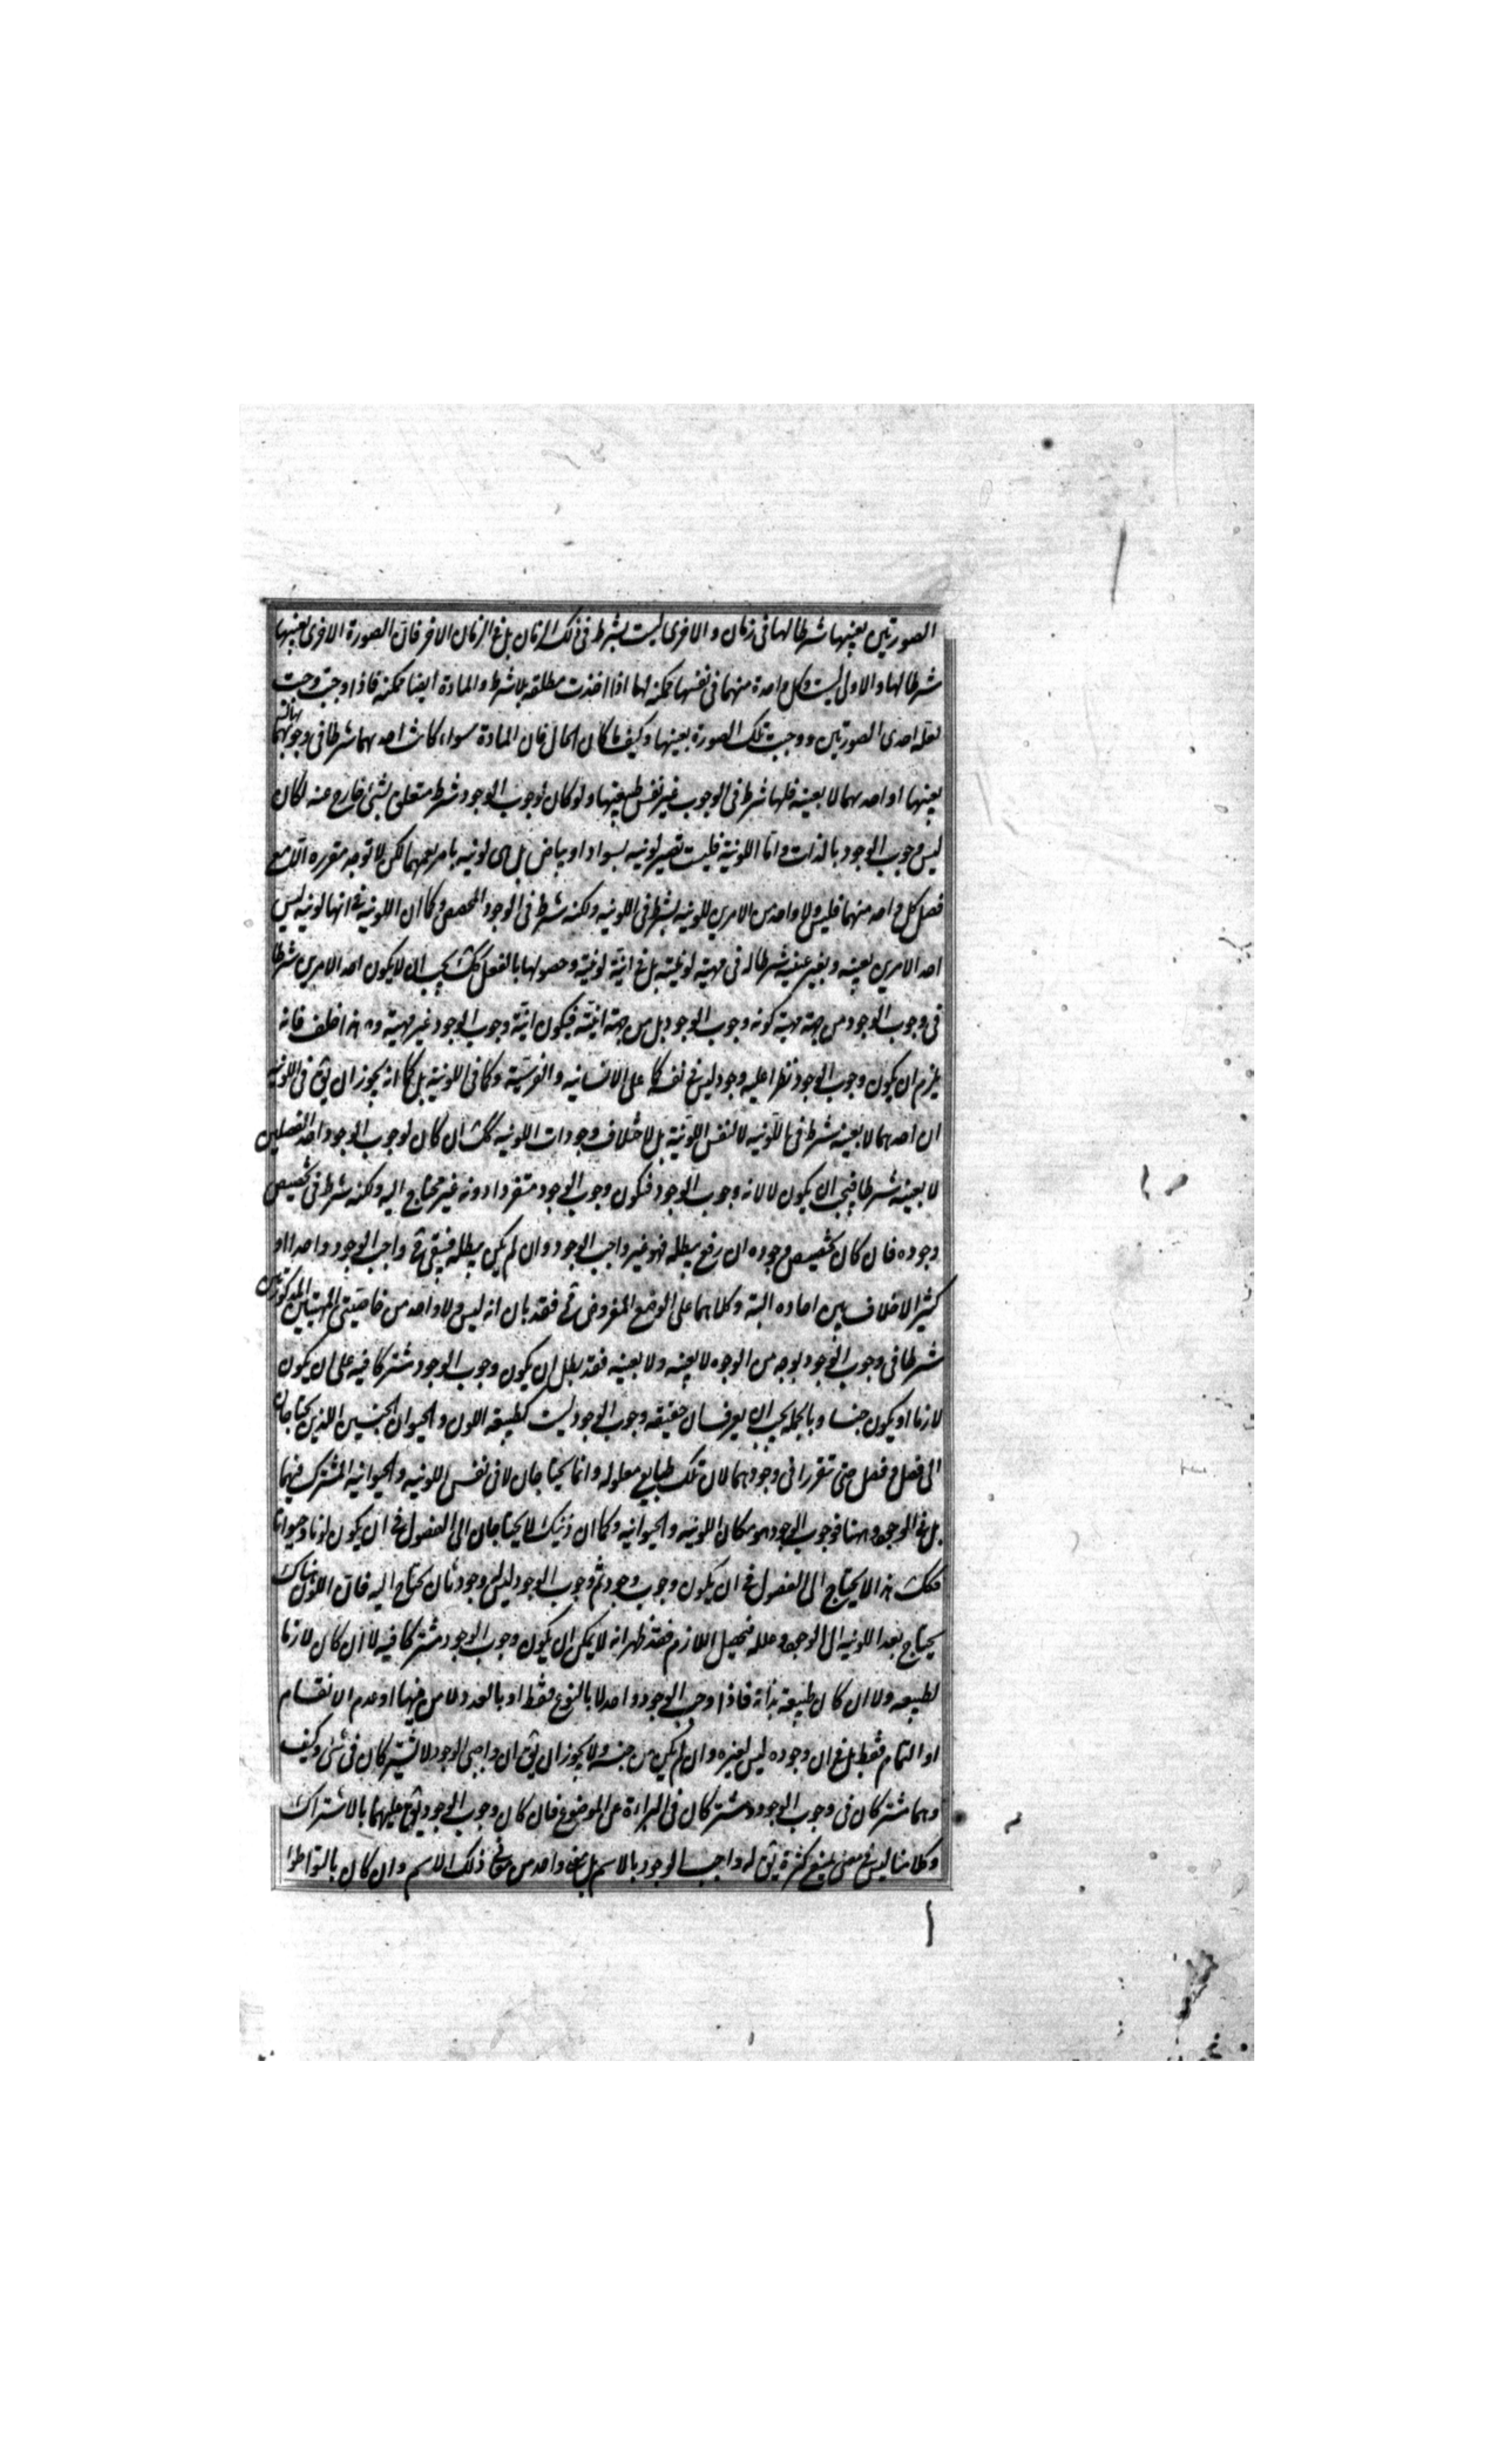 الصورتين بعينها شرطا لها فى زمان والاخرى ليست بشرط فى ذلك الزمان بل فى الزمان الاخر فان الصورة الاخرى بعينها
شرطا لها والاولى ليست وكل واحدة منهما فى نفسها ممكنة لها اذا اخذت مطلقه بلا شرط والمادة ايضا ممكنة فاذا وجبت وجبت
لعلة احدى الصورتين ووجبت تلك الصورة بعينها وكيف ما كان الحال فان المادة سواء كانت احديهما شرطا فى وجوبها
بعينها او احديهما لا بعينه فلها شرط فى الوجوب غير نفس طبيعتها ولو كان لوجوب الوجود شرط متعلق بشئ خارج عنه لكان
ليس وجوب الوجود بالذات واما اللونية فليست تصير لونيه بسواد او بياض بل هى لونيه بامر يعمهما لكن لا توجد مقرره الا مع
فصل كل واحد منهما فليس ولا واحد من الامرين للونيه بشرط فى اللونيه ولكنه شرط فى الوجود المحصص وكما ان اللونيه فى انها لونيه ليس
احد الامرين بعينه وبغير عينه شرطا له فى مهية لونيته بل فى انية لونيته وحصولها بالفعل كك يجب ان لا يكون احد الامرين شرطا
فى وجوب الوجود من جهة مهية كونه وجوب الوجود بل من جهة انيته فيكون انية وجوب الوجود غير مهيته وهذا خلف فانه
يلزم ان يكون وجوب الوجود نظرا عليه وجود ليس فى نفسه كما على الانسانيه والفرسية وكما فى اللونية بل كما انه يجوز ان يق فى اللونيه
ان احدهما لا بعينه شرط فى اللونيه لا لنفس اللونية بل لاختلاف وجودات اللونيه كك ان كان لوجوب الوجود احد الفصلين
لا بعينه شرطا فيجب ان يكون لا لانه وجوب الوجود فيكون وجوب الوجود متقررا دونه غير محتاج اليه ولكنه شرط فى تخصيص
وجوده فان كان تخصيص وجوده ان رفع يبطله فهو غير واجب الوجود وان لم يكن يبطله فيبقى واجب الوجود واحدا او
كثير الاختلاف بين احاده البتة وكلاهما على الوضع المفروض فقد بان انه ليس ولا واحد من خاصيتى المهيتين المذكورتين
شرطا فى وجوب الوجود بوجه من الوجوه لا بعينه ولا بعينه فقد بطل ان يكون وجوب الوجود مشتركا فيه على ان يكون
لازما او يكون جنسا وبالجملة يجب ان يعرف ان حقيقه وجوب الوجود ليست كطبيعة اللون والحيوان الجنسين اللذين يحتاجان
الى فصل وفصل حتى تتقررا فى وجودهما لان تلك طبايع معلوله وانما يحتاجان لا فى نفس اللونيه والحيوانيه المشترك فيهما
بل فى الوجود وههنا فوجوب الوجود هو مكان اللونيه والحيوانيه وكما ان ذينك لا يحتاجان الى الفصول فى ان يكون لونا وحيوانا
فكك هذا لا يحتاج الى الفصول فى ان يكون وجوب وجود ثم وجوب الوجود ليس له وجود ثان يحتاج اليه فان اللون هناك
يحتاج بعد اللونيه الى الوجود وعلله فيحصل اللازم فقد ظهر انه لا يمكن ان يكون وجوب الوجود مشتركا فيه لا ان كان لازما
لطبيعه ولا ان كان طبيعة بذاته فاذا وجب الوجود واحد لا بالنوع فقط او بالعدد ولا من جهة او عدم الانقسام
او التمام فقط بل فى ان وجوده ليس لغيره وان لم يكن من جنسه ولا يجوز ان يق ان واجبى الوجود لا يشتركان فى شئ وكيف
وهما مشتركان فى وجوب الوجود ومشتركان فى البراءة عن الموضوع فان كان وجوب الوجود يق عليهما بالاشتراك
وكلامنا ليس فى معنى يمنع كثرة يق له واجب الوجود بالاسم بل معنى واحد من معانى ذلك الاسم وان كان بالتواطؤ